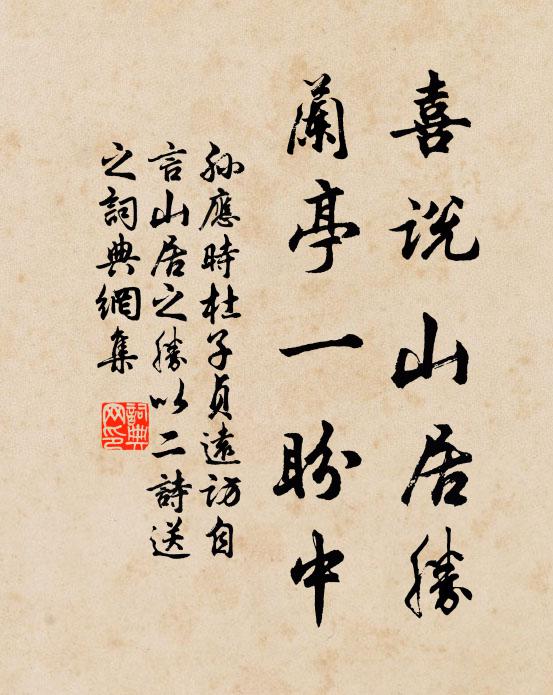 喜说山居勝
蘭亭一盼中
孫應時杜子貞遠訪自
言山居之勝以二詩送
之詞典網集
詞典
网印